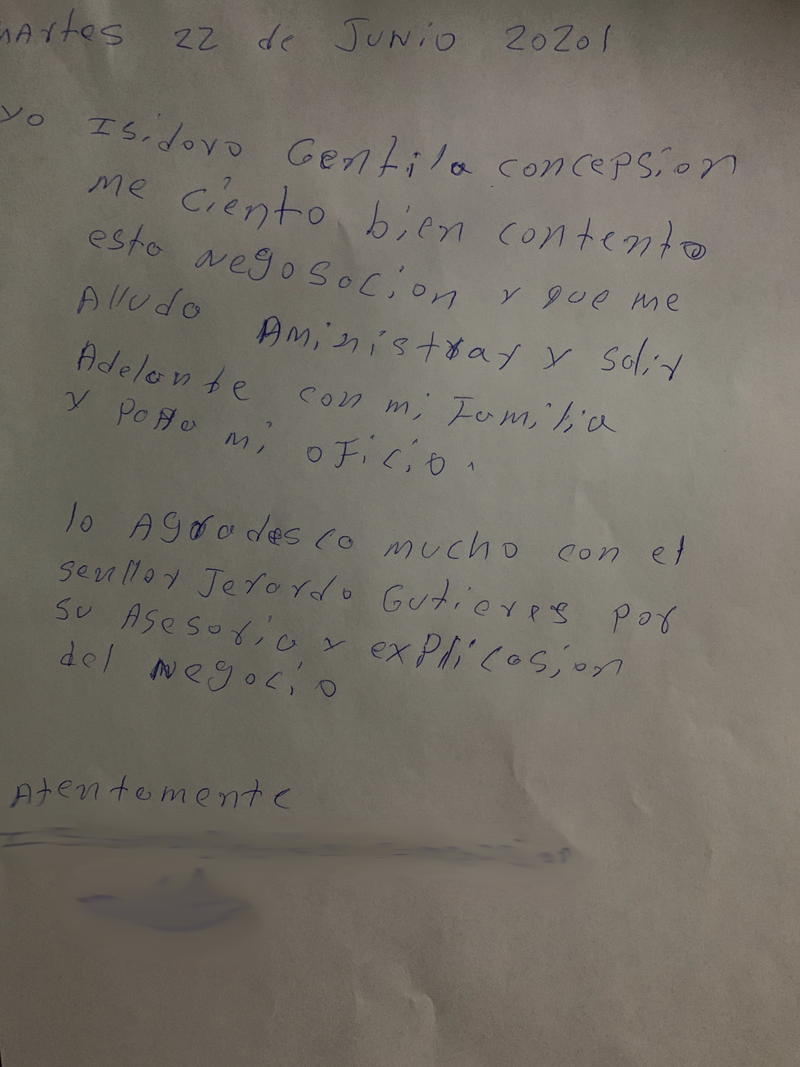 martes 22 de Junio 20201
yo Isidoro Gentila concepsion
me ciento bien contento
esto negosocion y que me
Alludo Aministray y salir
Adelante con mi Familia
y Poño mi oficio.
lo Agradesco mucho con el
senllor Jerardo Gutieres por
su Asesoria y explicasion
del Negocio
Atentamente